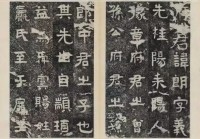 君諱朗字義
先桂陽耒陽人
豫章府君之曾
孫公府君之孫
郎中君之子也
其先出自顓頊
賜姓
嬴氏至于